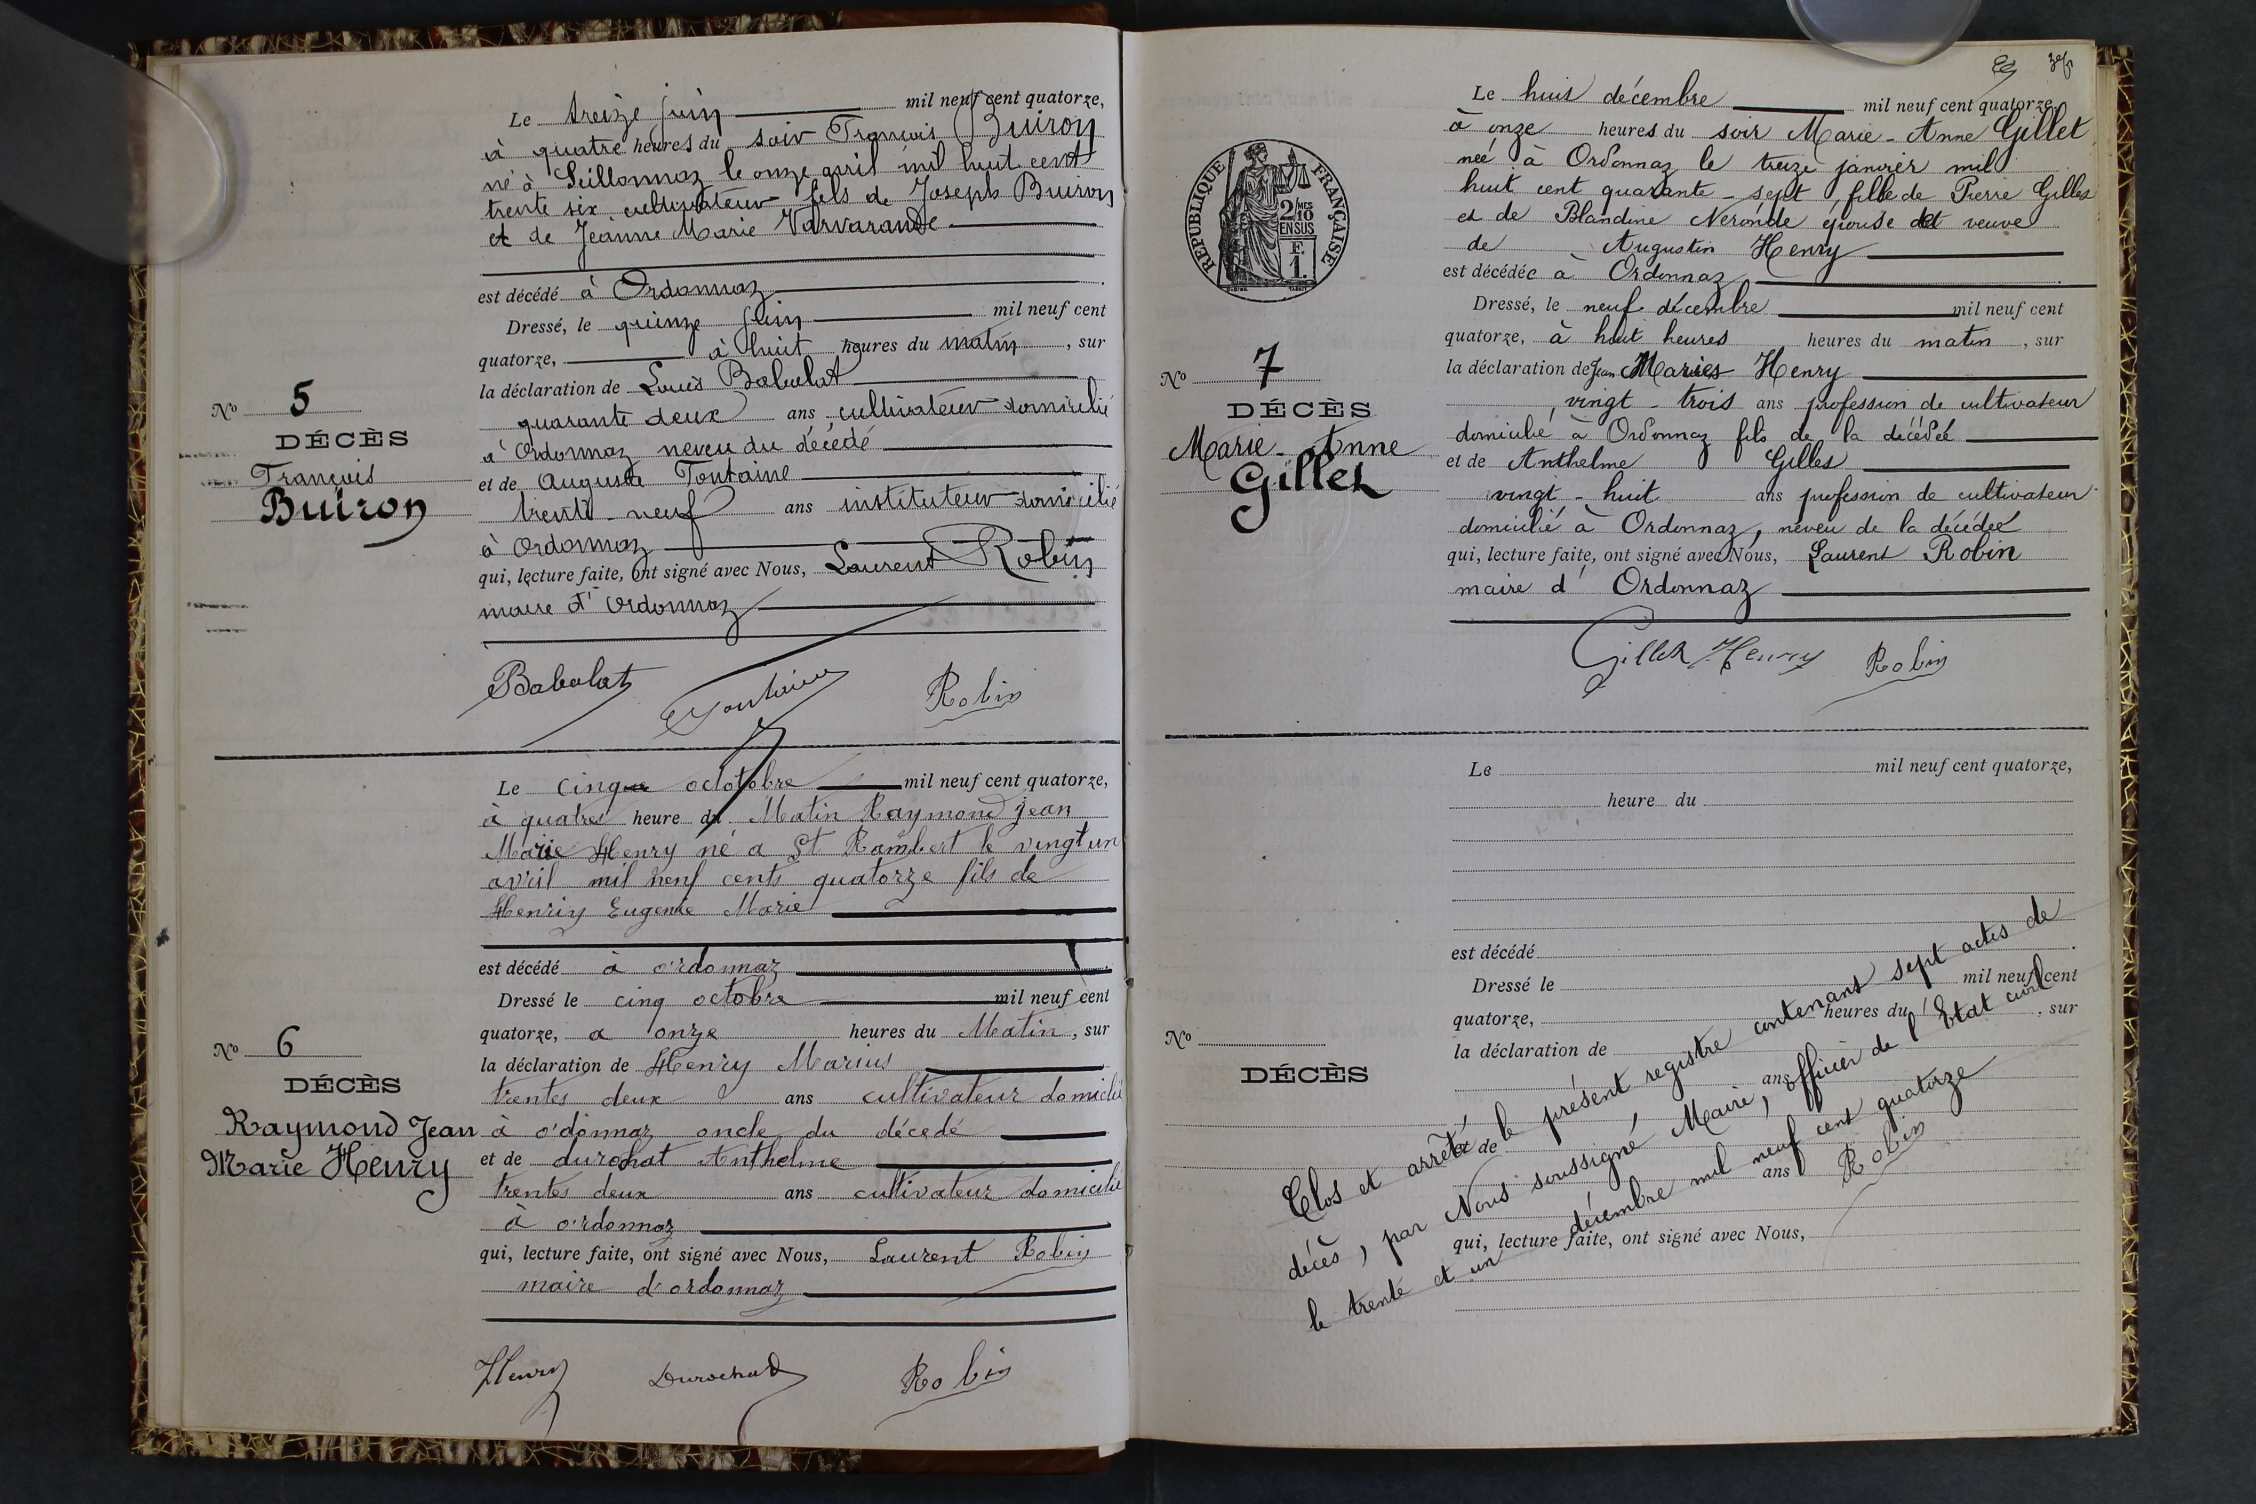 Le treize juin mil neuf cent quatorze,
à quatre heures du soir François Buiron
né à Seillonnaz le onze avril mil huit cent
trente six cultivateur fils de Joseph Buiron
et de Jeanne Marie Varvarande
est décédé à Ordonnaz
Dressé, le quinze juin mil neuf cent
quatorze, à huit heures du matin, sur
la déclaration de Louis Babolat
quarante deux ans cultivateur domicilié
à Ordonnaz neveu du décédé
et de Auguste Fontaine
trente-neuf ans instituteur domicilié
à Ordonnaz
qui, lecture faite, ont signé avec Nous, Laurent Robin
maire d'Ordonnaz
Nº 5
DÉCÈS
François
Buiron
Babolat Fontaine Robin
Le cinq octobre mil neuf cent quatorze,
à quatres heure du Matin Raymond Jean
Marie Henry né a St Rambert le vingt un
avril mil neuf cents quatorze fils de
Henriy Eugenie Marie
est décédé à o'rdonnaz
Dressé le cinq octobre mil neuf cent
quatorze, a onze heures du Matin, sur
la déclaration de Henry Marius
trentes deux ans cultivateur domicilié
à o'donnaz oncle du décedé
et de durochat Anthelme
trentes deux ans cultivateur domicilié
à o'rdonnaz
qui, lecture faite, ont signé avec Nous, Laurent Robin
maire d'ordonnaz
Nº 6
DÉCÈS
Raymond Jean
Marie Henry
Henry Durochat Robin
Le huit décembre mil neuf cent quatorze,
à onze heures du soir Marie-Anne Gillet
née à Ordonnaz le treize janvier mil
huit cent quarante-sept, fille de Pierre Gilles
et de Blandine Neronde épouse veuve
de Augustin Henry
est décédée à Ordonnaz
Dressé, le neuf décembre mil neuf cent
quatorze, à huit heures heures du matin, sur
la déclaration de Jean Maries Henry
vingt-trois ans profession de cultivateur
domicilié à Ordonnaz fils de la décédée
et de Anthelme Gilles
vingt-huit ans profession de cultivateur
domicilié à Ordonnaz, neveu de la décédée
qui, lecture faite, ont signé avec Nous, Laurent Robin
maire d'Ordonnaz
RÉPUBLIQUE FRANÇAISE
2/10MES
EN SUS
F.
1.
Nº 7
DÉCÈS
Marie-Anne
Gillet
Gillet Henry Robin
Le mil neuf cent quatorze,
heure du
est décédé
Dressé le mil neuf cent
quatorze, heures du , sur
la déclaration de
ans
et de
ans
qui, lecture faite, ont signé avec Nous,
Nº
DÉCÈS
Clos et arrêté le présent registre contenant sept actes de
décès, par Nous soussigné Maire, officier de l'Etat civil
le trente et un décembre mil neuf cent quatorze
Robin